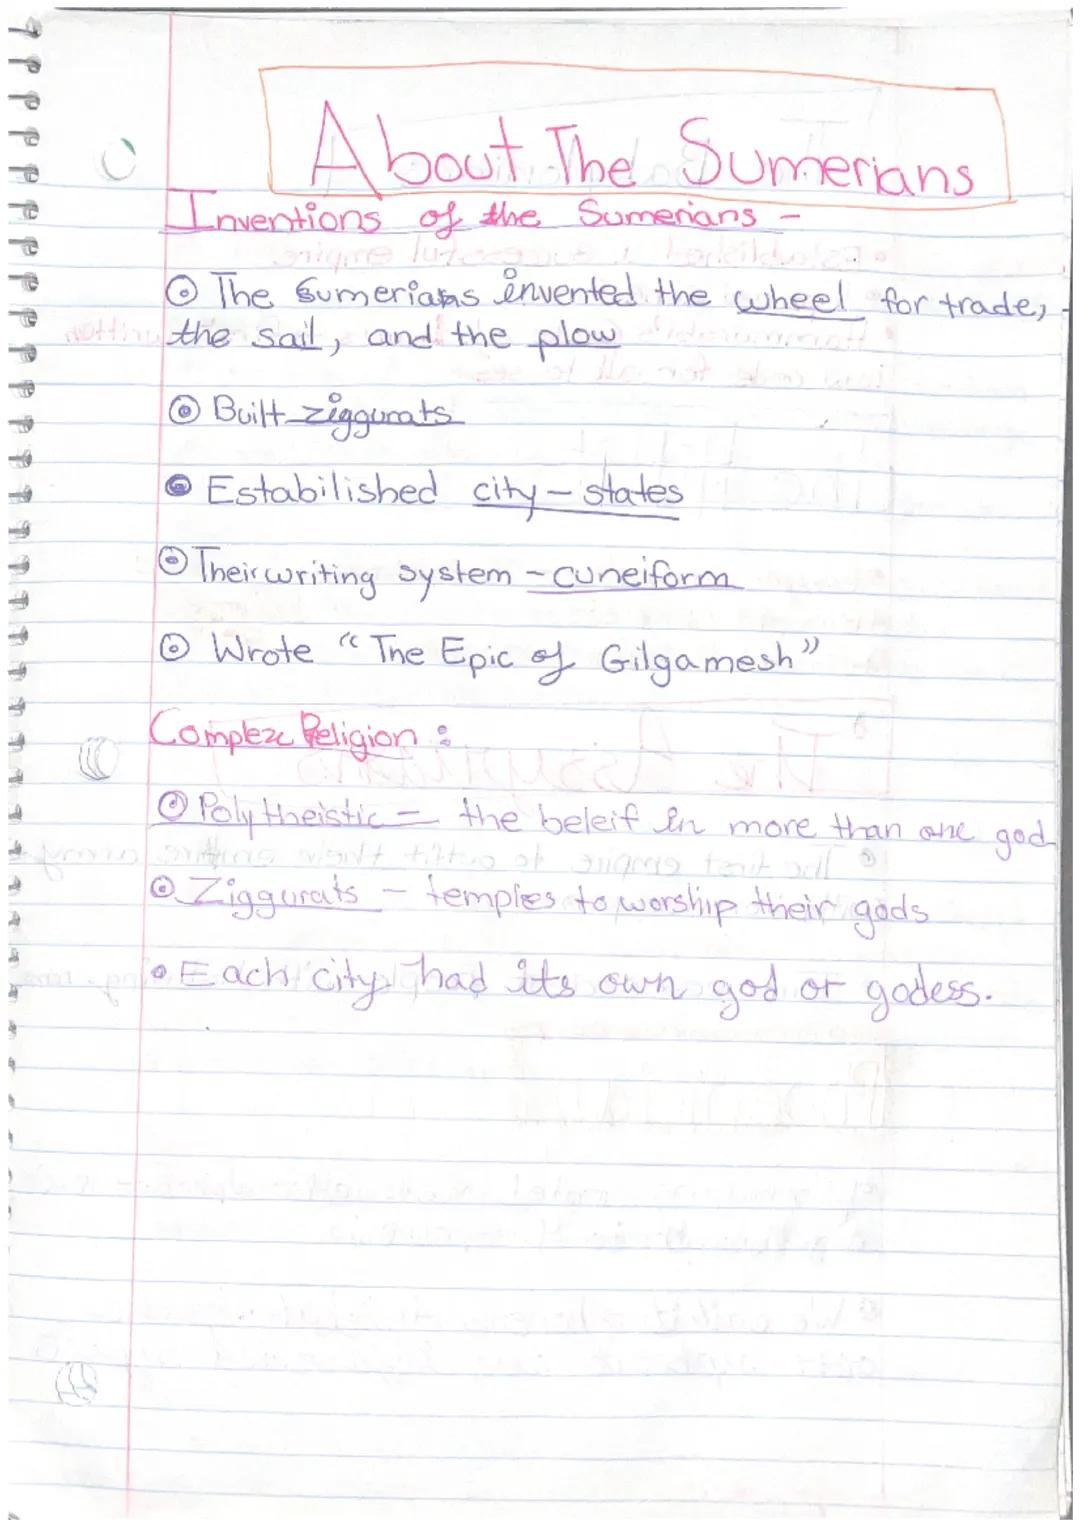 About The Sumerians
Inventions of the Sumerians -
The Sumerians invented the wheel for trade,
the sail, and the plow
Built ziggurats
Estabilished city - states
Their writing system - cuneiform
Wrote " The Epic of Gilgamesh"
Complex Religion :
Polytheistic - the beleif in more than one god
Ziggurats - temples to worship their gods
• Each city had its own god or godess.